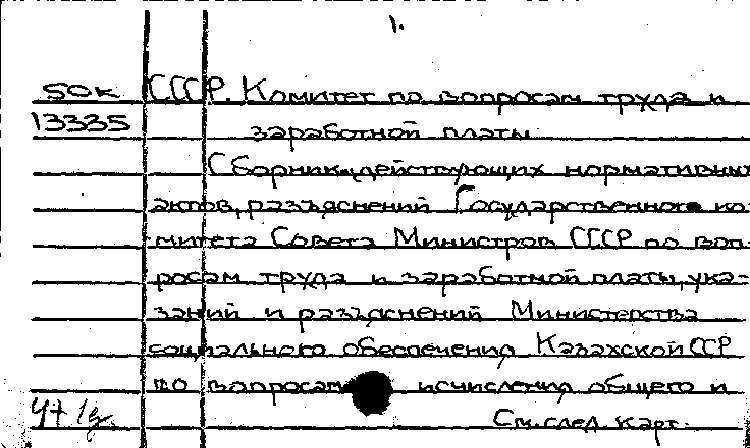 1.
50к СССР. Комитет по вопросам труда и
13335 заработной платы
Сборник действующих нормативных
актов, разъяснений Государственного ко-
митета Совета Министров СССР по воп-
росам труда и заработной платы, ука-
заний и разъяснений Министерства
социального обеспечения Казахской ССР
по вопросам исчисления общего и
См. след. карт.